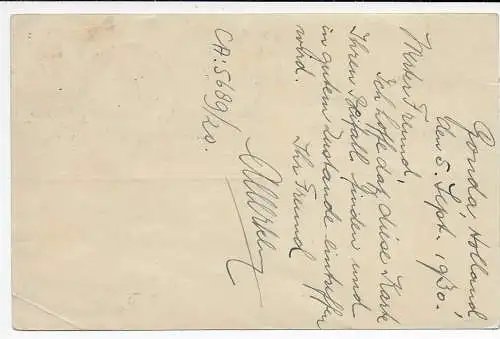 Gouda, Holland
den 5. Sept. 1930.
Mein Freund,
Ich hoffe daß diese Karte
Ihren Beifall finden und
in gutem Zustande eintreffen
wird.
Ihr Freund
CA: 5689/20.